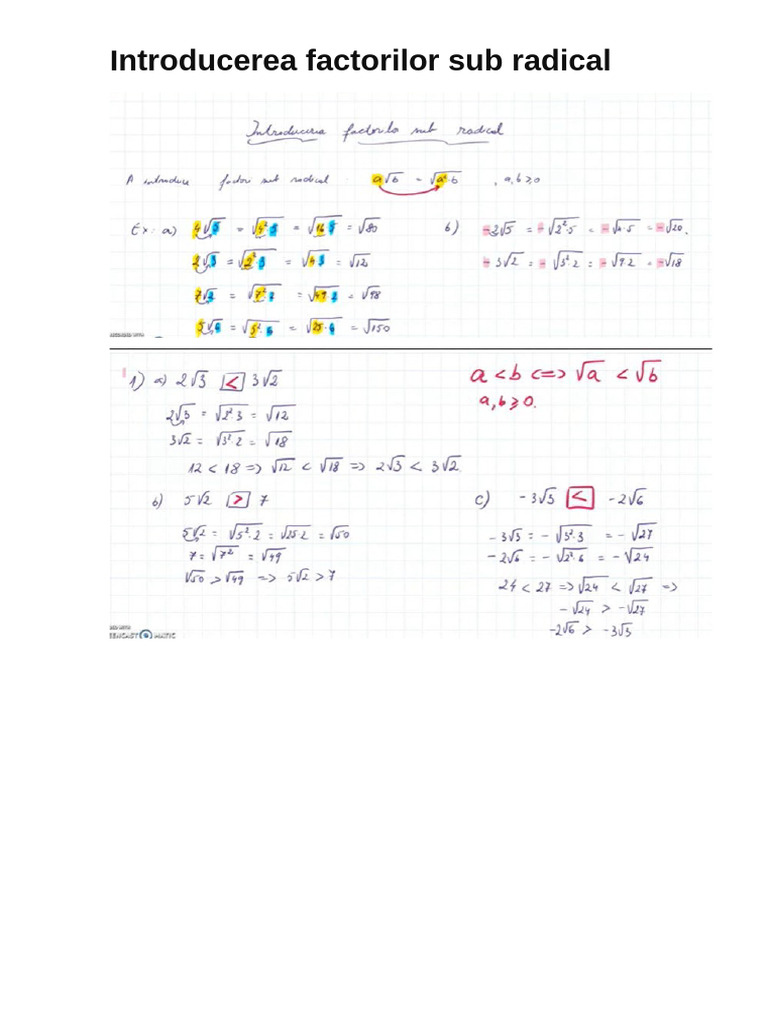 Introducerea factorilor sub radical
Introducerea factorilo sub radical
A introduce factori sub radical : a√b = √a²·b , a,b ≥ 0
Ex: a) 4√5 = √4²·5 = √16·5 = √80
2√3 = √2²·3 = √4·3 = √12
7√2 = √7²·2 = √49·2 = √98
5√6 = √5²·6 = √25·6 = √150
b) -2√5 = -√2²·5 = -√4·5 = -√20.
-3√2 = -√3²·2 = -√9·2 = -√18
1) a) 2√3 < 3√2
2√3 = √2²·3 = √12
3√2 = √3²·2 = √18
12 < 18 => √12 < √18 => 2√3 < 3√2.
a < b <=> √a < √b
a, b ≥ 0.
b) 5√2 > 7
5√2 = √5²·2 = √25·2 = √50
7 = √7² = √49
√50 > √49 => 5√2 > 7
c) -3√3 < -2√6
-3√3 = -√3²·3 = -√27
-2√6 = -√2²·6 = -√24
24 < 27 => √24 < √27 =>
-√24 > -√27
-2√6 > -3√3